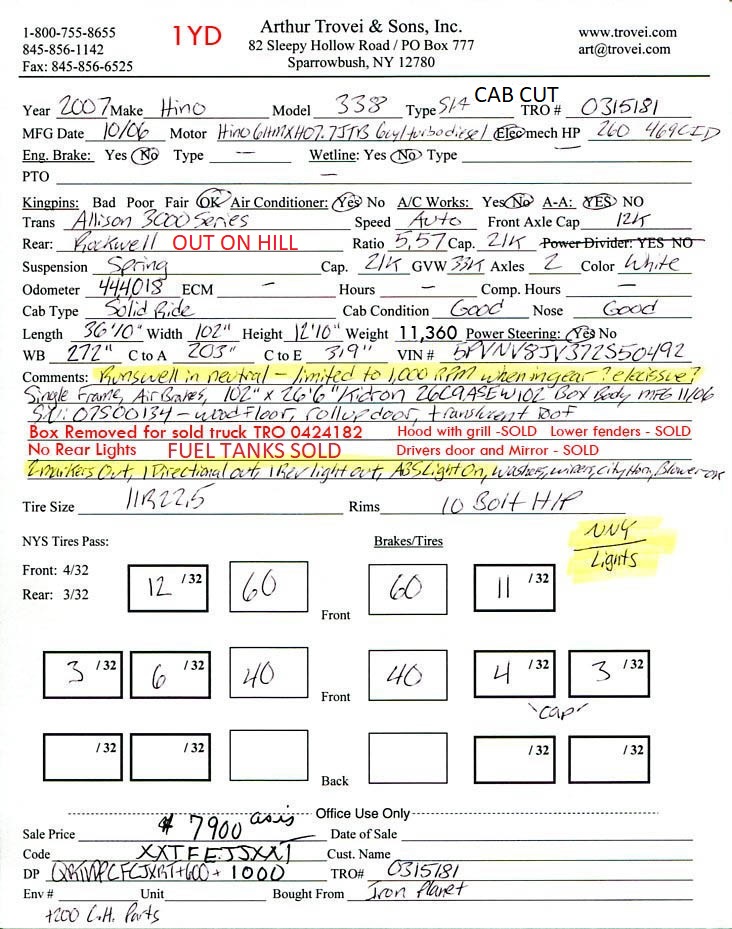 1-800-755-8655
845-856-1142
Fax: 845-856-6525
1YD
Arthur Trovei & Sons, Inc.
82 Sleepy Hollow Road / PO Box 777
Sparrowbush, NY 12780
www.trovei.com
art@trovei.com
CAB CUT
Year 2007 Make Hino Model 338 Type S/A TRO # 0315181
MFG Date 10/06 Motor Hino 6cyl turbodiesel Elec mech HP 260 469CID
Eng. Brake: Yes No Type — Wetline: Yes No Type —
PTO —
Kingpins: Bad Poor Fair OK Air Conditioner: Yes No A/C Works: Yes No A-A: YES NO
Trans Allison 3000 Series Speed Auto Front Axle Cap 12K
Rear: Rockwell OUT ON HILL Ratio 5.57 Cap. 21K Power Divider: YES NO
Suspension Spring Cap. 21K GVW 33K Axles 2 Color White
Odometer 444018 ECM — Hours — Comp. Hours —
Cab Type Solid Ride Cab Condition Good Nose Good
Length 36'10" Width 102" Height 12'10" Weight 11,360 Power Steering: Yes No
WB 272" C to A 203" C to E 319" VIN # 5PVNV8JV372S50492
Comments: Runs well in neutral - limited to 1,000 RPM when in gear ? elec issue ?
Single Frame, Air Brakes, 102" x 26'6" Kidron 26C9ASEW102 Box Body mfg 11/06
07S00134 - wood floor, rollup door, translucent roof
Box Removed for sold truck TRO 0424182 Hood with grill -SOLD Lower fenders - SOLD
No Rear Lights FUEL TANKS SOLD Drivers door and Mirror - SOLD
2 markers Out, 1 Directional out, 1 Rev light out, ABS Light On, washers, wipers, city Horn, Blower
Tire Size 11R22.5 Rims 10 Bolt H/P
NYS Tires Pass: Brakes/Tires
NNY
Lights
Front: 4/32
Rear: 3/32
12 /32 60 Front 60 11 /32
3 /32 6 /32 40 Front 40 4 /32 3 /32
"cap"
/32 /32 Back /32 /32
Office Use Only
Sale Price # 7900 as is Date of Sale
Code XXTFEJJXXI Cust. Name
DP +600 + 1000 TRO# 0315181
Env # Unit Bought From Iron Planet
+200 C.H. Parts